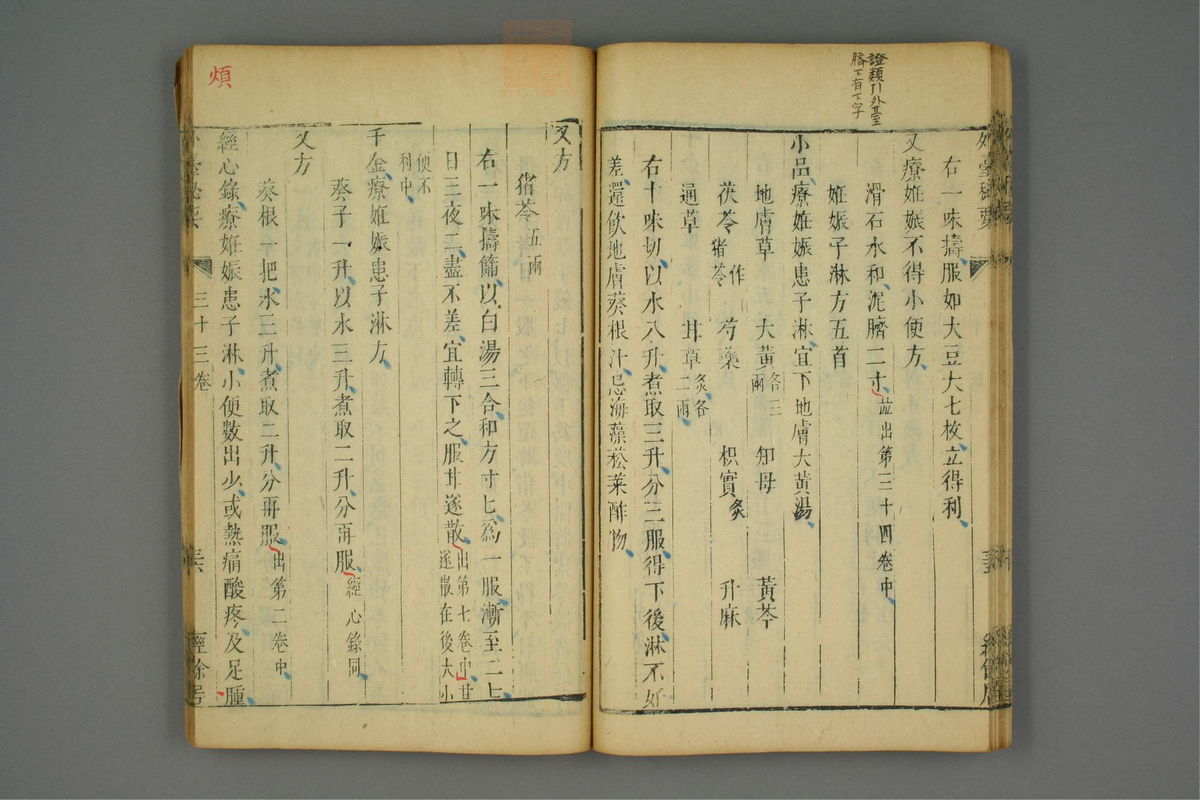 證類引外臺
臍下有下字
右一味擣服如大豆大七枚立得利
又療姙娠不得小便方
滑石水和泥臍二寸並出第三十四卷中
姙娠子淋方五首
小品療姙娠患子淋宜下地膚大黃湯
地膚草 大黃各三兩 知母 黃芩
茯苓猪苓作 芍藥 枳實炙 升麻
通草 甘草炙各二兩
右十味切以水八升煮取三升分三服得下後淋不好
差還飲地膚葵根汁忌海藻菘菜酢物
又方
猪苓五兩
右一味擣篩以白湯三合和方寸匕為一服漸至二匕
日三夜二盡不差宜轉下之服甘遂散出第七卷中甘
遂散在後大小
便不
利中
千金療姙娠患子淋方
葵子一升以水三升煮取二升分再服經心錄同
又方
葵根一把水三升煮取二升分再服出第二卷中
經心錄療姙娠患子淋小便數出少或熱痛酸疼及足腫
煩
外臺秘要
三十三卷
經餘居